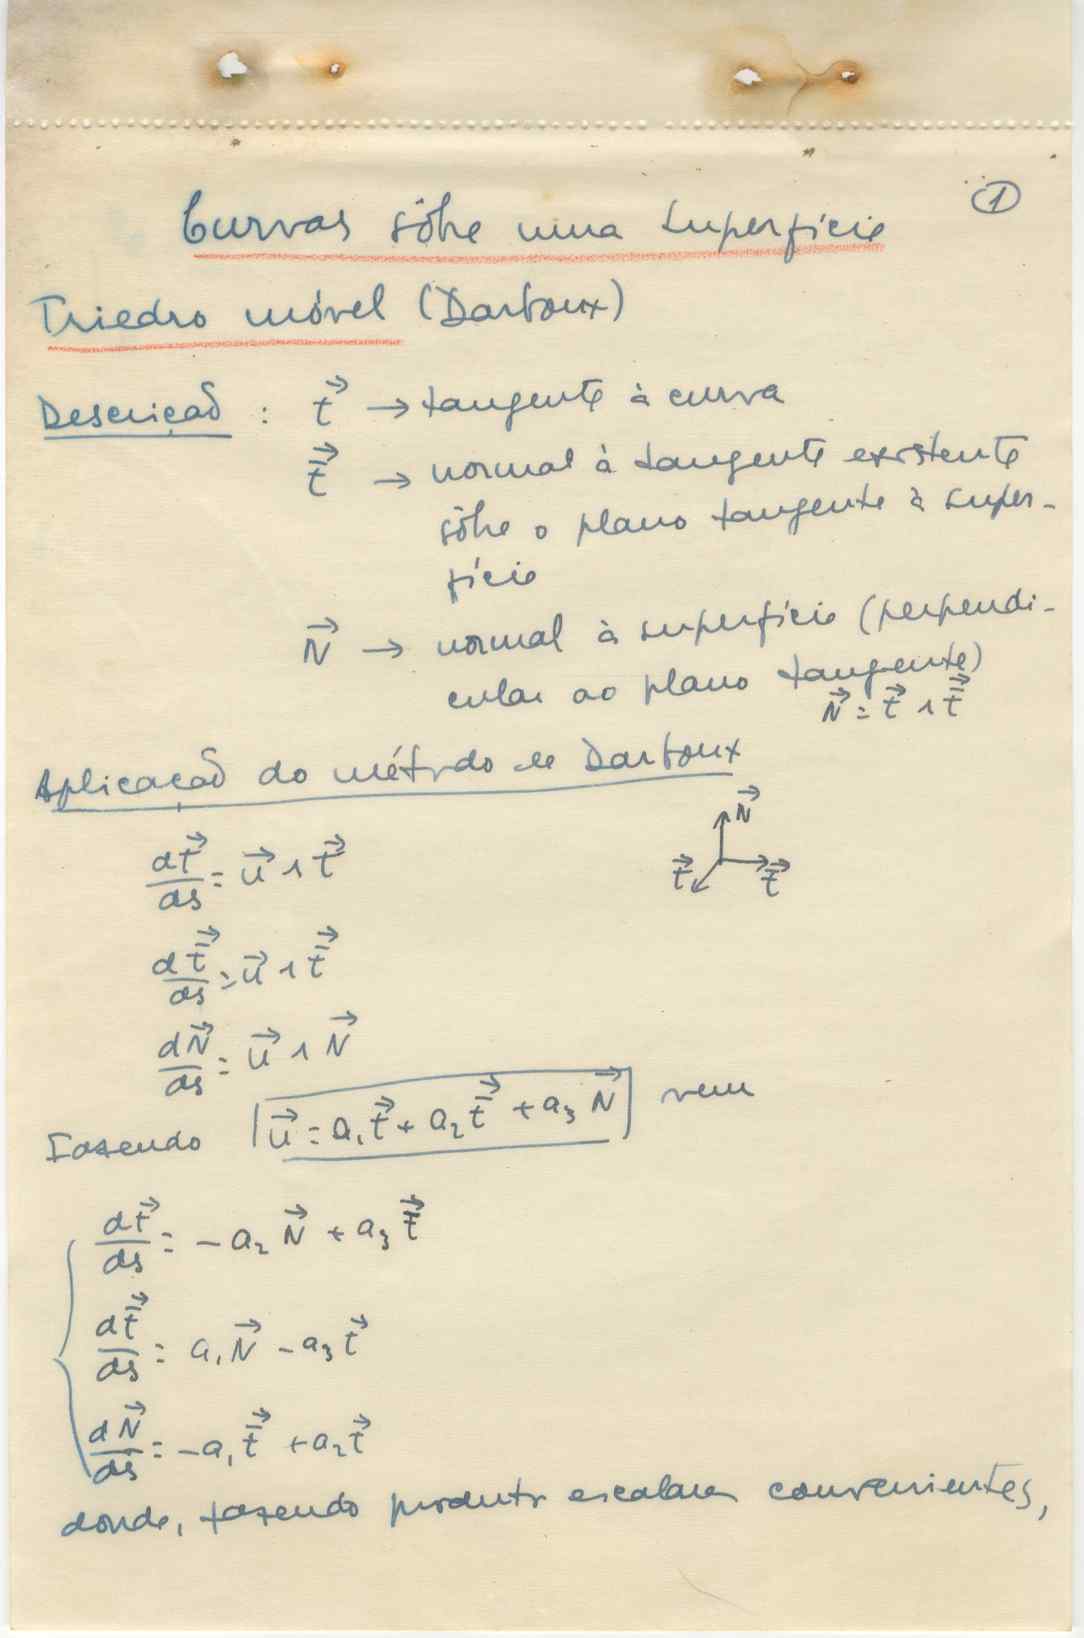 ①
Curvas sôbre uma superfície
Triedro móvel (Darboux)
Descrição : t⃗ → tangente à curva
t̄⃗ → normal à tangente existente
sôbre o plano tangente à super-
fície
N⃗ → normal à superfície (perpendi-
cular ao plano tangente)
N⃗ = t⃗ ∧ t̄⃗
Aplicação do método de Darboux
N⃗
t⃗ t̄⃗
dt⃗/ds = u⃗ ∧ t⃗
dt̄⃗/ds = u⃗ ∧ t̄⃗
dN⃗/ds = u⃗ ∧ N⃗
Fazendo u⃗ = a₁t⃗ + a₂t̄⃗ + a₃N⃗ vem
dt⃗/ds = -a₂N⃗ + a₃t̄⃗
dt̄⃗/ds = a₁N⃗ - a₃t⃗
dN⃗/ds = -a₁t̄⃗ + a₂t⃗
donde, fazendo produtos escalares convenientes,